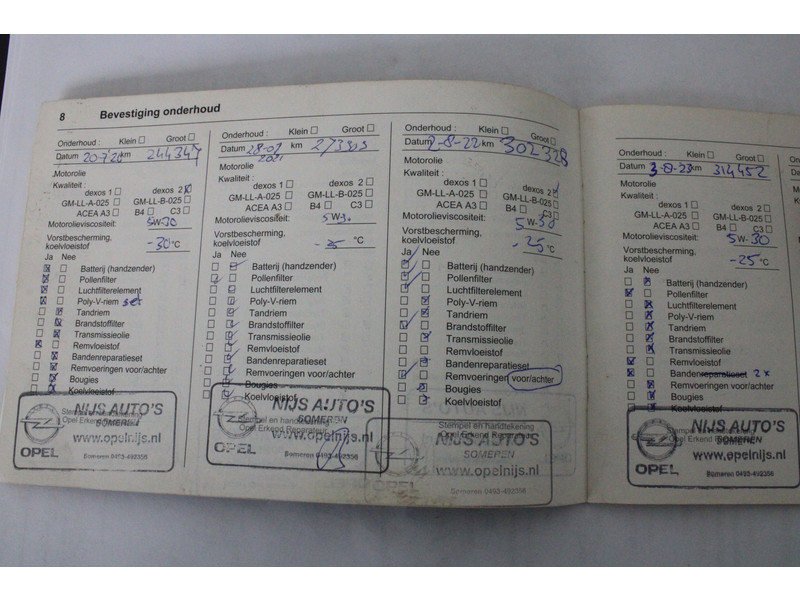 8 Bevestiging onderhoud
Onderhoud : Klein Groot
Datum 20-7'20 km 244347
Motorolie
Kwaliteit :
dexos 1 dexos 2
GM-LL-A-025 GM-LL-B-025
ACEA A3 B4 C3
Motorolieviscositeit: 5W-30
Vorstbescherming,
koelvloeistof -30 °C
Ja Nee
Batterij (handzender)
Pollenfilter
Luchtfilterelement
Poly-V-riem set
Tandriem
Brandstoffilter
Transmissieolie
Remvloeistof
Bandenreparatieset
Remvoeringen voor/achter
Bougies
Koelvloeistof
Stempel en handtekening
Opel Erkend Reparateur
NIJS AUTO'S
SOMEREN
www.opelnijs.nl
OPEL
Someren 0493-492356
Onderhoud : Klein Groot
Datum 28-07 2021 km 273303
Motorolie
Kwaliteit :
dexos 1 dexos 2
GM-LL-A-025 GM-LL-B-025
ACEA A3 B4 C3
Motorolieviscositeit: 5W-30
Vorstbescherming,
koelvloeistof -25 °C
Ja Nee
Batterij (handzender)
Pollenfilter
Luchtfilterelement
Poly-V-riem
Tandriem
Brandstoffilter
Transmissieolie
Remvloeistof
Bandenreparatieset
Remvoeringen voor/achter
Bougies
Koelvloeistof
Stempel en handtekening
Opel Erkend Reparateur
NIJS AUTO'S
SOMEREN
www.opelnijs.nl
OPEL
Someren 0493-492356
Onderhoud : Klein Groot
Datum 2-8-22 km 302328
Motorolie
Kwaliteit :
dexos 1 dexos 2
GM-LL-A-025 GM-LL-B-025
ACEA A3 B4 C3
Motorolieviscositeit: 5W-30
Vorstbescherming,
koelvloeistof -25 °C
Ja Nee
Batterij (handzender)
Pollenfilter
Luchtfilterelement
Poly-V-riem
Tandriem
Brandstoffilter
Transmissieolie
Remvloeistof
Bandenreparatieset
Remvoeringen voor/achter
Bougies
Koelvloeistof
Stempel en handtekening
Opel Erkend Reparateur
NIJS AUTO'S
SOMEREN
www.opelnijs.nl
OPEL
Someren 0493-492356
Onderhoud : Klein Groot
Datum 3-8-23 km 314452
Motorolie
Kwaliteit :
dexos 1 dexos 2
GM-LL-A-025 GM-LL-B-025
ACEA A3 B4 C3
Motorolieviscositeit: 5W-30
Vorstbescherming,
koelvloeistof -25 °C
Ja Nee
Batterij (handzender)
Pollenfilter
Luchtfilterelement
Poly-V-riem
Tandriem
Brandstoffilter
Transmissieolie
Remvloeistof
Bandenreparatieset 2x
Remvoeringen voor/achter
Bougies
Koelvloeistof
Stempel en handtekening
Opel Erkend
NIJS AUTO'S
SOMEREN
www.opelnijs.nl
OPEL
Someren 0493-492356